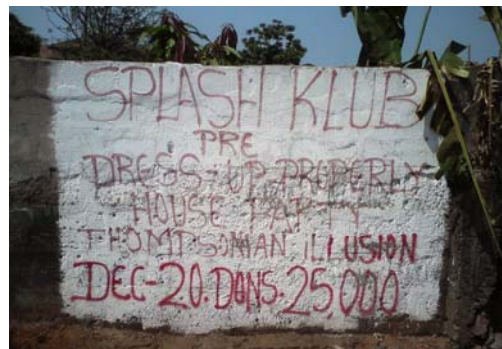 SPLASH KLUB
PRE
DRESS-UP-PROPERLY
HOUSE PARTY
THOMPSONIAN ILLUSION
DEC-20. DONS. 25,000